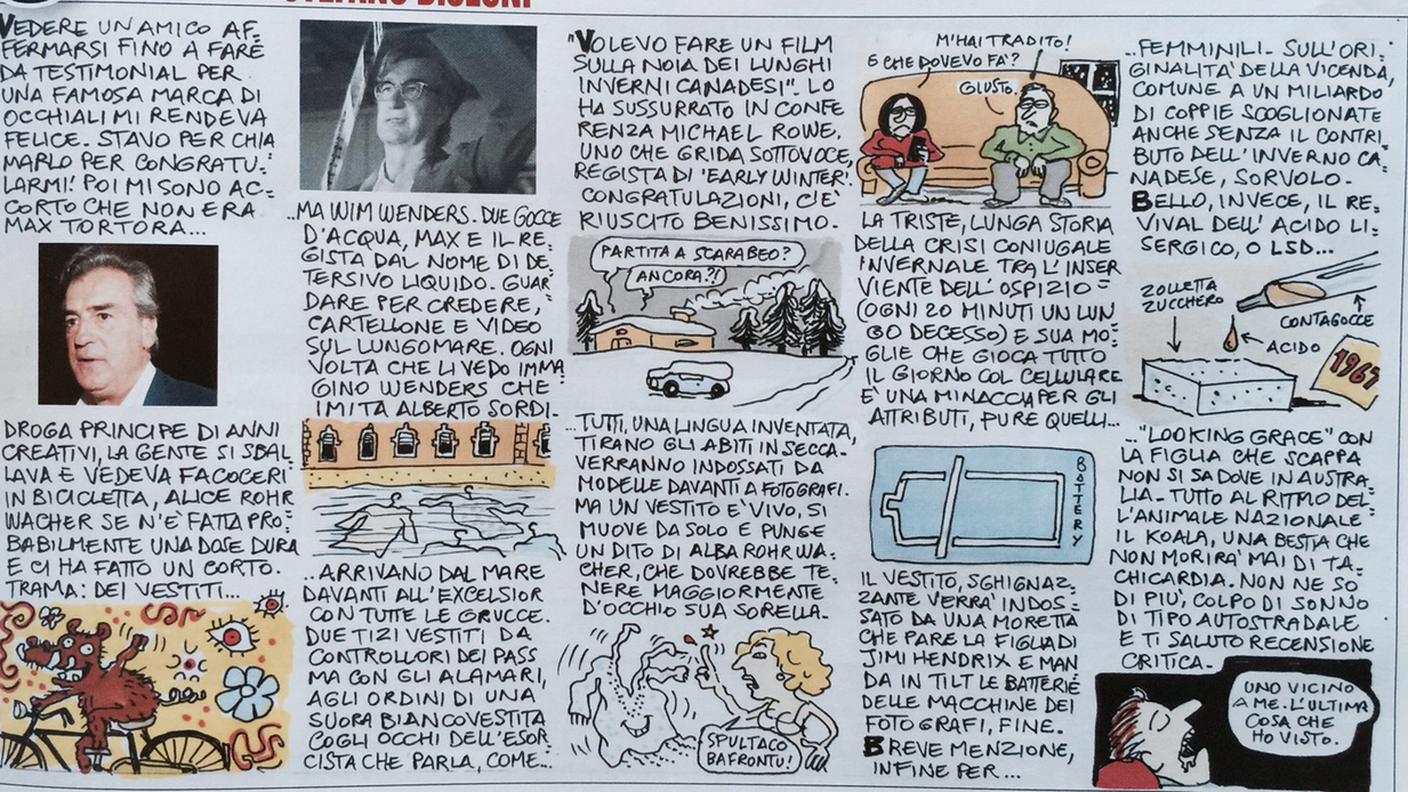 VEDERE UN AMICO AF=
FERMARSI FINO A FARE
DA TESTIMONIAL PER
UNA FAMOSA MARCA DI
OCCHIALI MI RENDEVA
FELICE. STAVO PER CHIA
MARLO PER CONGRATU=
LARMI! POI MI SONO AC=
CORTO CHE NON ERA
MAX TORTORA...
..MA WIM WENDERS. DUE GOCCE
D'ACQUA, MAX E IL RE=
GISTA DAL NOME DI DE=
TERSIVO LIQUIDO. GUAR=
DARE PER CREDERE,
CARTELLONE E VIDEO
SUL LUNGOMARE. OGNI
VOLTA CHE LI VEDO IMMA=
GINO WENDERS CHE
IMITA ALBERTO SORDI.
"VOLEVO FARE UN FILM
SULLA NOIA DEI LUNGHI
INVERNI CANADESI". LO
HA SUSSURRATO IN CONFE
RENZA MICHAEL ROWE,
UNO CHE GRIDA SOTTOVOCE,
REGISTA DI 'EARLY WINTER'.
CONGRATULAZIONI, C'È
RIUSCITO BENISSIMO.
PARTITA A SCARABEO?
ANCORA?!
M'HAI TRADITO!
E CHE DOVEVO FA'?
GIUSTO.
LA TRISTE, LUNGA STORIA
DELLA CRISI CONIUGALE
INVERNALE TRA L'INSER
VIENTE DELL'OSPIZIO=
(OGNI 20 MINUTI UN LUN=
GO DECESSO) E SUA MO=
GLIE CHE GIOCA TUTTO
IL GIORNO COL CELLULARE
E' UNA MINACCIA PER GLI
ATTRIBUTI, PURE QUELLI...
..FEMMINILI. SULL'ORI=
GINALITA' DELLA VICENDA,
COMUNE A UN MILIARDO
DI COPPIE SCOGLIONATE
ANCHE SENZA IL CONTRI=
BUTO DELL'INVERNO CA=
NADESE, SORVOLO.
BELLO, INVECE, IL RE=
VIVAL DELL'ACIDO LI=
SERGICO, O LSD...
ZOLLETTA
ZUCCHERO
CONTAGOCCE
ACIDO
1967
DROGA PRINCIPE DI ANNI
CREATIVI, LA GENTE SI SBAL
LAVA E VEDEVA FACOCERI
IN BICICLETTA, ALICE ROHR
WACHER SE N'E' FATTA PRO=
BABILMENTE UNA DOSE DURA
E CI HA FATTO UN CORTO.
TRAMA: DEI VESTITI...
..ARRIVANO DAL MARE
DAVANTI ALL'EXCELSIOR
CON TUTTE LE GRUCCE.
DUE TIZI VESTITI DA
CONTROLLORI DEI PASS
MA CON GLI ALAMARI,
AGLI ORDINI DI UNA
SUORA BIANCOVESTITA
COGLI OCCHI DELL'ESOR
CISTA CHE PARLA, COME...
...TUTTI, UNA LINGUA INVENTATA,
TIRANO GLI ABITI IN SECCA.
VERRANNO INDOSSATI DA
MODELLE DAVANTI A FOTOGRAFI.
MA UN VESTITO E' VIVO, SI
MUOVE DA SOLO E PUNGE
UN DITO DI ALBA ROHRWA=
CHER, CHE DOVREBBE TE=
NERE MAGGIORMENTE
D'OCCHIO SUA SORELLA.
SPULTACO
BAFRONTU!
BOTTERY
IL VESTITO, SGHIGNAZ=
ZANTE VERRA' INDOS=
SATO DA UNA MORETTA
CHE PARE LA FIGLIA DI
JIMI HENDRIX E MAN
DA IN TILT LE BATTERIE
DELLE MACCHINE DEI
FOTOGRAFI, FINE.
BREVE MENZIONE,
INFINE PER...
..."LOOKING GRACE" CON
LA FIGLIA CHE SCAPPA
NON SI SA DOVE IN AUSTRA=
LIA. TUTTO AL RITMO DEL=
L'ANIMALE NAZIONALE
IL KOALA, UNA BESTIA CHE
NON MORIRA' MAI DI TA=
CHICARDIA. NON NE SO
DI PIU', COLPO DI SONNO
DI TIPO AUTOSTRADALE
E TI SALUTO RECENSIONE
CRITICA.
UNO VICINO
A ME. L'ULTIMA
COSA CHE
HO VISTO.